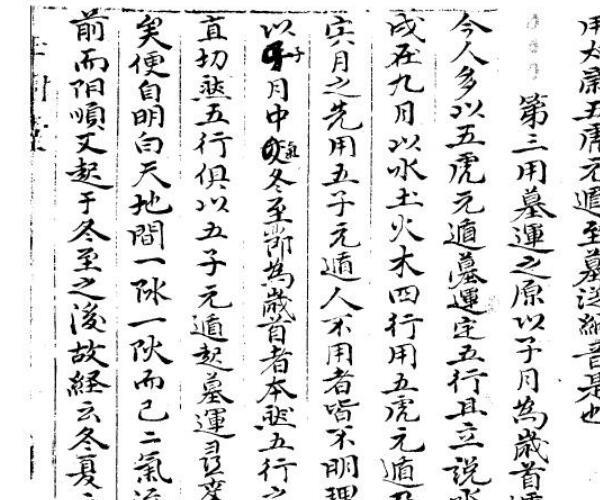 五虎元遁至墓納音是也
第三用墓運之原以子月為歲首
今人多以五虎元遁墓運定五行且立說
戌在九月以水土火木四行用五虎元遁
寅月之先用五子元遁人不用者皆不明理
以子月中氣冬至節為歲首者本然五行之
直切然五行俱以五子元遁起墓運尋
矣便自明白天地間一阦一阥而已二氣
前而阳順又起于冬至之後故経云冬夏